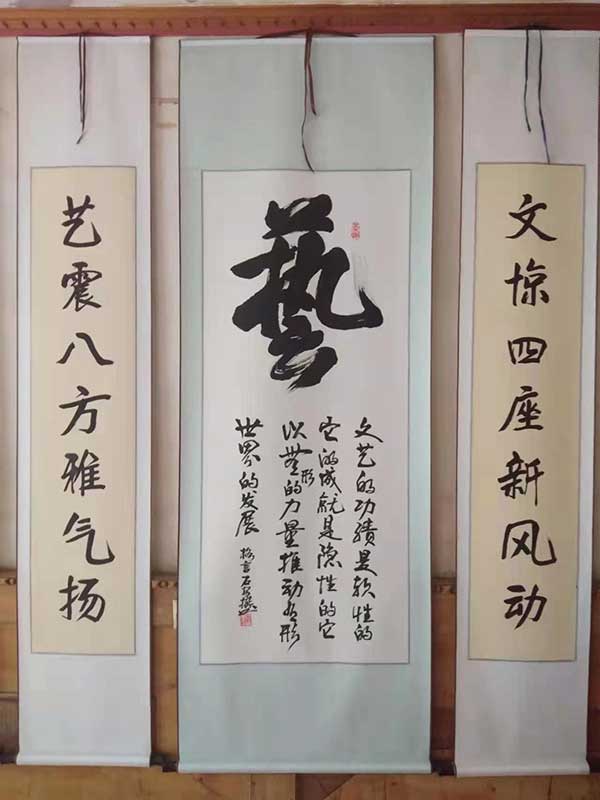 文惊四座新风动
藝
文艺的功绩是软性的
它的成就是隐性的它
以無形的力量推动有形
世界的发展
艺震八方雅气扬